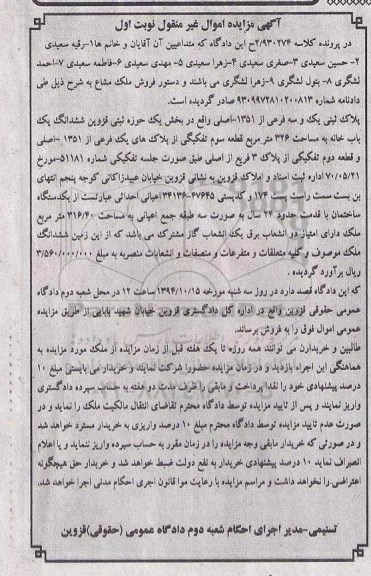 آگهی مزایده اموال غیر منقول نوبت اول
در پرونده کلاسه ۲/۹۳۰۲۷۴ح این دادگاه که متداعیین آن آقایان و خانم ها۱-رقیه سعیدی
۲- حسین سعیدی ۳-صغری سعیدی ۴-زهرا سعیدی ۵- مهدی سعیدی ۶-فاطمه سعیدی ۷-احمد
لشگری ۸- بتول لشگری ۹-زهرا لشگری می باشند و دستور فروش ملک مشاع به شرح ذیل طی
دادنامه شماره ۹۳۰۹۹۷۲۸۱۰۲۰۰۸۱۳ صادر گردیده است.
پلاک ثبتی یک و سه فرعی از ۱۳۵۱-اصلی واقع در بخش یک حوزه ثبتی قزوین ششدانگ یک
باب خانه به مساحت ۳۲۶ متر مربع قطعه سوم تفکیکی از پلاک های یک فرعی از ۱۳۵۱ -اصلی
و قطعه دوم تفکیکی از پلاک ۳ فریع از اصلی طبق صورت جلسه تفکیکی شماره ۵۱۱۸۱-مورخ
۷۰/۰۵/۲۱ اداره ثبت اسناد و املاک قزوین به نشانی قزوین خیابان عبیدزاکانی کوچه پنجم انتهای
بن بست سمت راست پلاک ۱۷۴ و کدپستی ۴۷۶۴۵-۳۴۱۳۶اعیانی احداثی عبارتست از یکدستگاه
ساختمان با قدمت حدود ۲۴ سال به صورت سه طبقه جمع اعیانی به مساحت ۳۱۶/۴۰ متر مربع
ملک دارای امتیاز دو انشعاب برق یک انشعاب گاز مشترک می باشد که از این زمین ششدانگ
ملک موصوف و کلیه متعلقات و متفرعات و منصفات و انشعابات منصربه به مبلغ ۳/۵۶۰/۰۰۰/۰۰۰
ریال برآورد گردیده .
که این دادگاه قصد دارد در روز سه شنبه مورخه ۱۳۹۴/۱۰/۱۵ ساعت ۱۲ در محل شعبه دوم دادگاه
عمومی حقوقی قزوین واقع در اداره کل دادگستری قزوین خیابان شهید بابایی از طریق مزایده
عمومی اموال فوق را به فروش برساند.
طالبین و خریدارن می توانند همه روزه تا یک هفته قبل از زمان مزایده از ملک مورد مزایده به
هماهنگی این اجراء بازدید و در زمان مزایده حضورا شرکت نمایند و خریدار می بایستی مبلغ ۱۰
درصد پیشنهادی خود را نقدا پرداخت و مابقی را ظرف مدت دو هفته به حساب سپرده دادگستری
واریز نمایند و پس از تایید مزایده توسط دادگاه محترم تقاضای انتقال مالکیت ملک را نماید و در
صورت عدم تایید مزایده توسط دادگاه محترم مبلغ ۱۰ درصد واریزی به خریدار مسترد خواهد شد
و در صورتی که خریدار مابقی وجه مزایده را در زمان مقرر به حساب سپرده واریز ننماید و یا اعلام
انصراف نماید ۱۰ درصد پیشنهادی خریدار به نفع دولت ضبط خواهد شد و خریدار حق هیچگونه
اعتراضی را نخواهد داشت و مراسم مزایده با رعایت موا قانون اجری احکام مدنی اجرا خواهد شد.
تسنیمی-مدیر اجرای احکام شعبه دوم دادگاه عمومی (حقوقی)قزوین